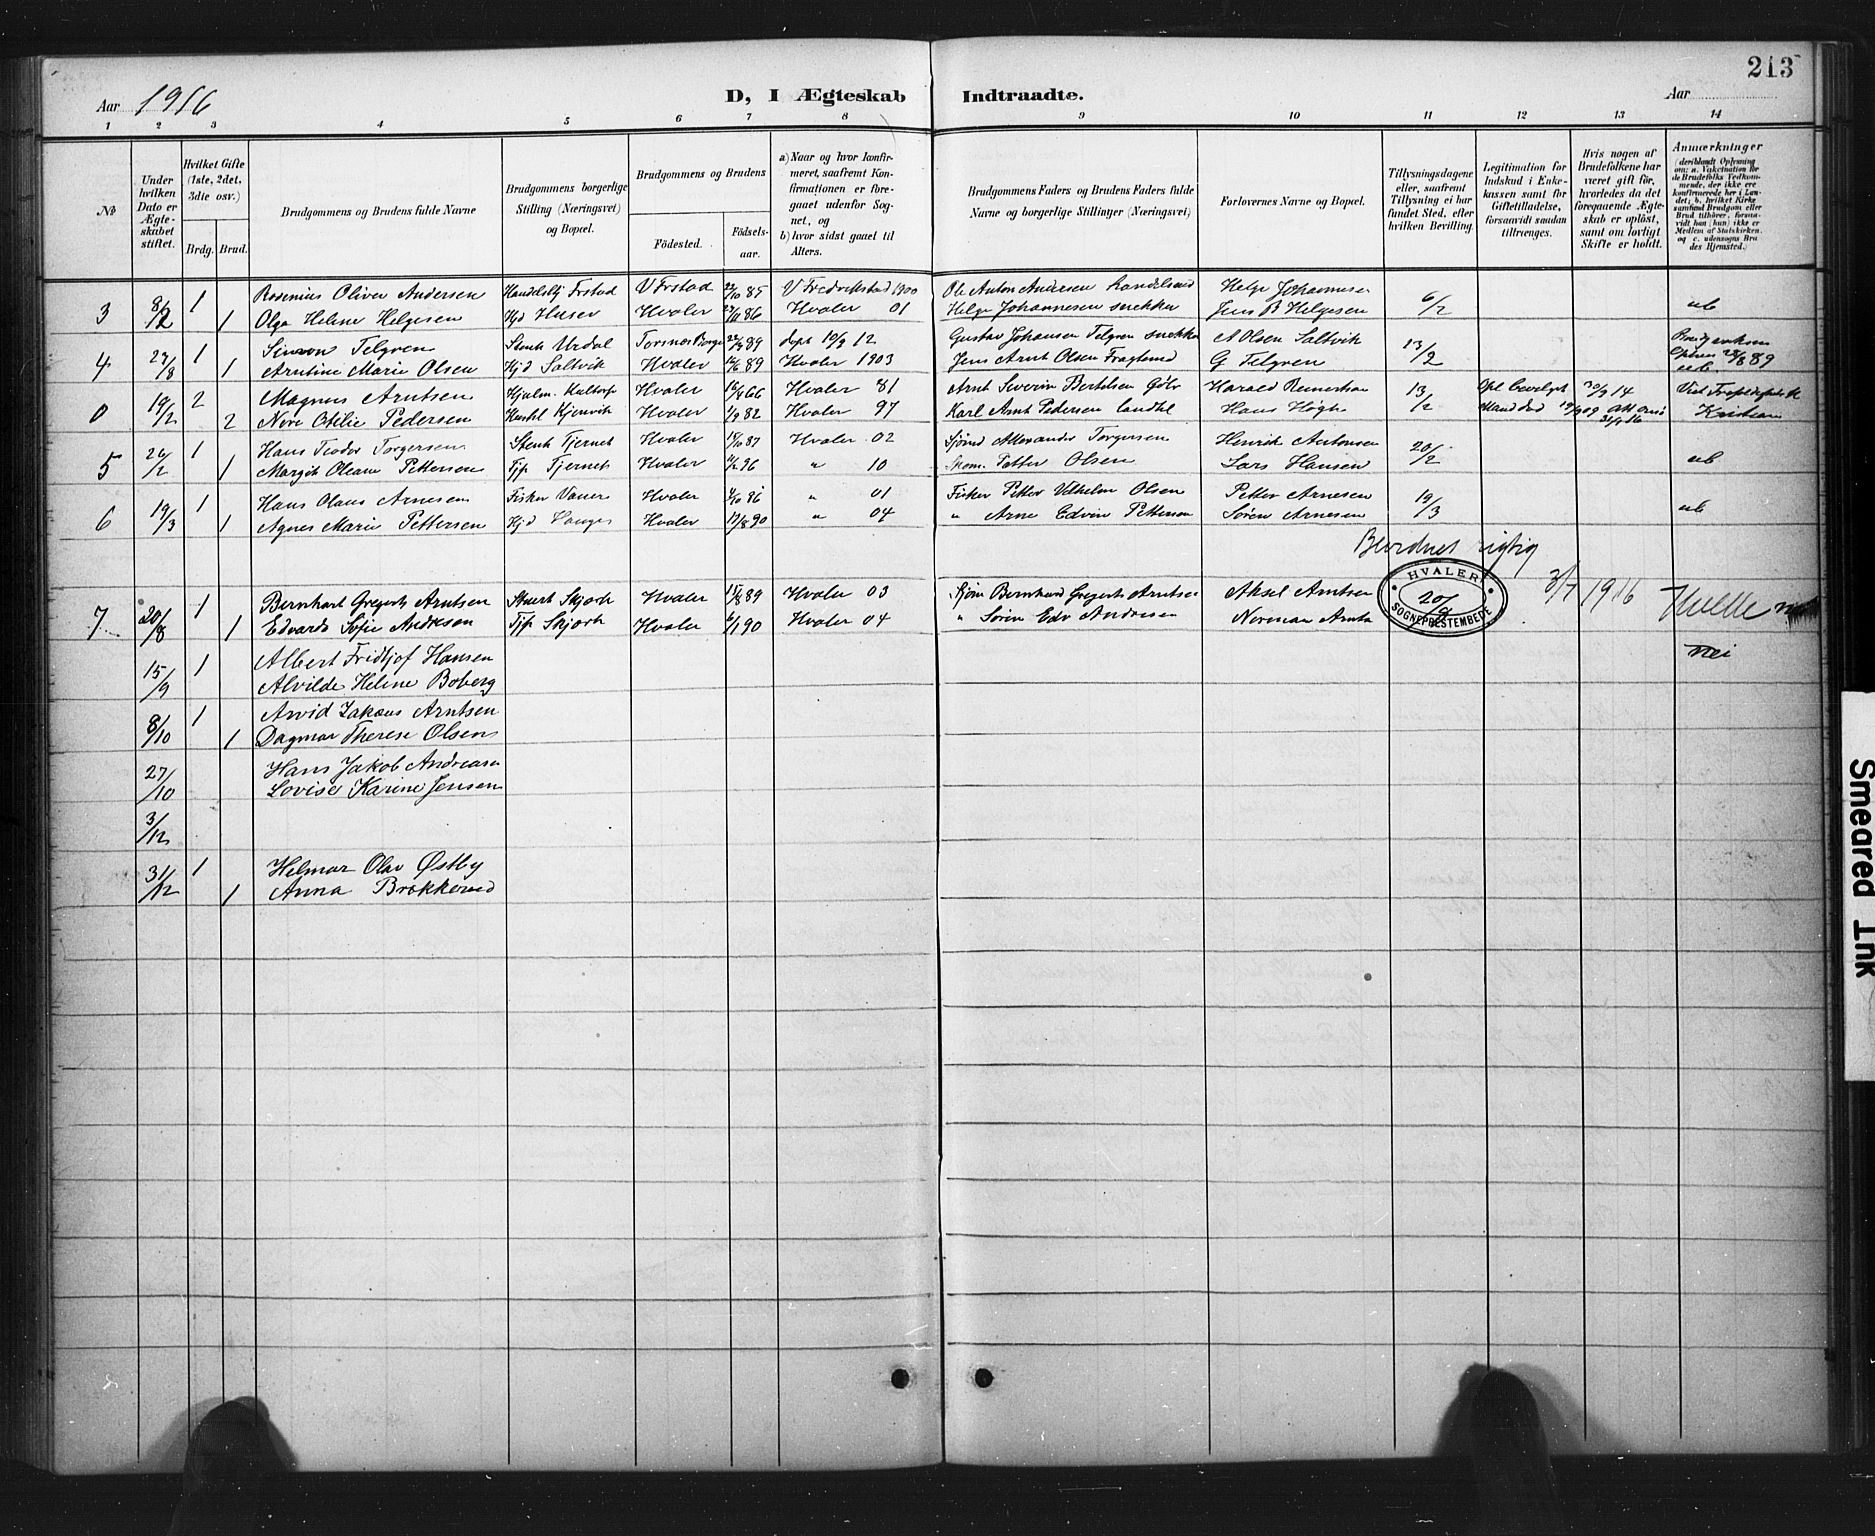 213
Aar 1916
D, I Ægteskab Indtraadte.
Aar
1 2 3 4 5 6 7 8 9 10 11 12 13 14
№
Under hvilken Dato er Ægteskabet stiftet.
Hvilket Gifte (1ste, 2det, 3die osv.)
Brdg. Brud.
Brudgommens og Brudens fulde Navne
Brudgommens borgerlige Stilling (Næringsvei) og Bopæl.
Brudgommens og Brudens
Fødested. Fødselsaar.
a) Naar og hvor konfirmeret, saafremt Konfirmationen er foregaaet udenfor Sognet, og
b) hvor sidst gaaet til Alters.
Brudgommens Faders og Brudens Faders fulde Navne og borgerlige Stillinger (Næringsvei)
Forlovernes Navne og Bopæl.
Tillysningsdagene eller, saafremt Tillysning ei har fundet Sted, efter hvilken Bevilling.
Legitimation for Indskud i Enkekassen samt for Giftetilladelse, forsaavidt saadan tiltrænges.
Hvis nogen af Brudefolkene har været gift før, hvorledes da det foregaaende Ægteskab er opløst, samt om lovligt Skifte er holdt.
Anmærkninger
(deriblandt Oplysning om: a. Vakcination for de Brudefolks Vedkommende, der ikke er konfirmerede her i Landet; b. hvilket Kirkesamfund Brudgom eller Brud tilhører, forsaavidt han (hun) ikke er Medlem af Statskirken, og c. udensogns Brudes Hjemsted.)
3 8/2 1 Rosenius Oliver Andersen Handelsbj Frstad V Frstad 22/10 85 V Fredrikstad 1900 Ole Anton Andersen Helge Johannesen 6/2
1 Olga Helene Helgesen Hjd Huser Hvaler 86 Hvaler 01 Helge Johannesen snekker Jens B Helgesen ub
4 27/8 1 Simon Telgren Stenh Urdal Torsnes Borge 89 døpt 10/9 12 Gustav Johansen Telgren snekker A Olsen Saltvik 13/2
1 Arntine Marie Olsen Hjd Saltvik Hvaler 89 Hvaler 1903 Jens Arnt Olsen G Telgren 28/8 89 ub
0 19/2 2 Magnus Arntsen Hjalm. Hvaler 16/4 66 Hvaler 81 Arnt Severin Bertelsen Harald 13/2 30/9 14
2 Nora Otilie Pedersen Hushl Kjenvik Hvaler 1/9 82 Hvaler 97 Karl Arnt Pedersen Hans Høgh
5 26/2 1 Hans Teodor Torgersen Stenh Tjernet Hvaler 87 Hvaler 02 Sjømd Alexander Torgersen Henrik Antonsen 20/2
1 Margit Oleane Pettersen Tjp Tjernet Hvaler 96 " 10 Petter Olsen Lars Hansen ub
6 19/3 1 Hans Olaus Arnesen Fisker Vauer Hvaler 4/10 86 " 01 Fisker Petter Vilhelm Olsen Petter Arnesen 19/3
1 Agnes Marie Pettersen Hjd Hvaler 17/8 90 " 04 " Arne Edvin Petterson Søren Arnesen ub
rigtig
HVALER SOGNEPRESTEMBEDE
3/7 1916
7 20/8 1 Bernhart Gregerts Arntsen Stenh Skjærh Hvaler 15/8 89 Hvaler 03 Sjøm Bernhard Gregerts Arntsen Aksel Arntsen 20/8
1 Edvarda Sofie Andresen Tjp Skjærh Hvaler 6/1 90 Hvaler 04 " Søren Edv Andresen Norman Arnts
15/9 1 Albert Fridtjof Hansen nei
Alvilde Heline Boberg
8/10 1 Arvid Jakaus Arntsen
1 Dagmar Therese Olsen
27/10 Hans Jakob Andreasen
Lovise Karine Jensen
3/12
31/12 1 Helmar Olav Østby
1 Anna Brækkerud
Smeared Ink